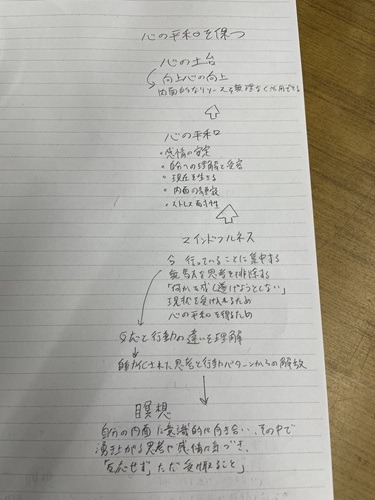 心の平和を保つ
心の土台
向上心の向上
内面的なリソースを無理なく活用できる
心の平和
・感情の安定
・自分への理解と受容
・現在を生きる
・内面の静寂
・ストレス耐性
マインドフルネス
今 行っていることに集中する
無駄な思考を排除する
「何かを成し遂げようとしない」
現状を受け入れるため
心の平和を得るため
反応と行動の違いを理解
自動化された思考と行動パターンからの解放
瞑想
自分の内面に意識的に向き合い、その中で
湧き上がる思考や感情に気づき、
「反応せず」ただ受け取ること」